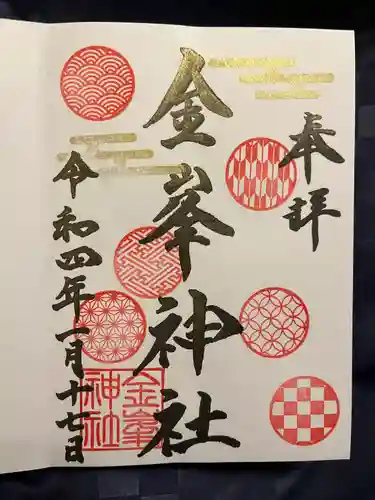 奉拝
金峯神社
令和四年一月十七日
金峯
神社